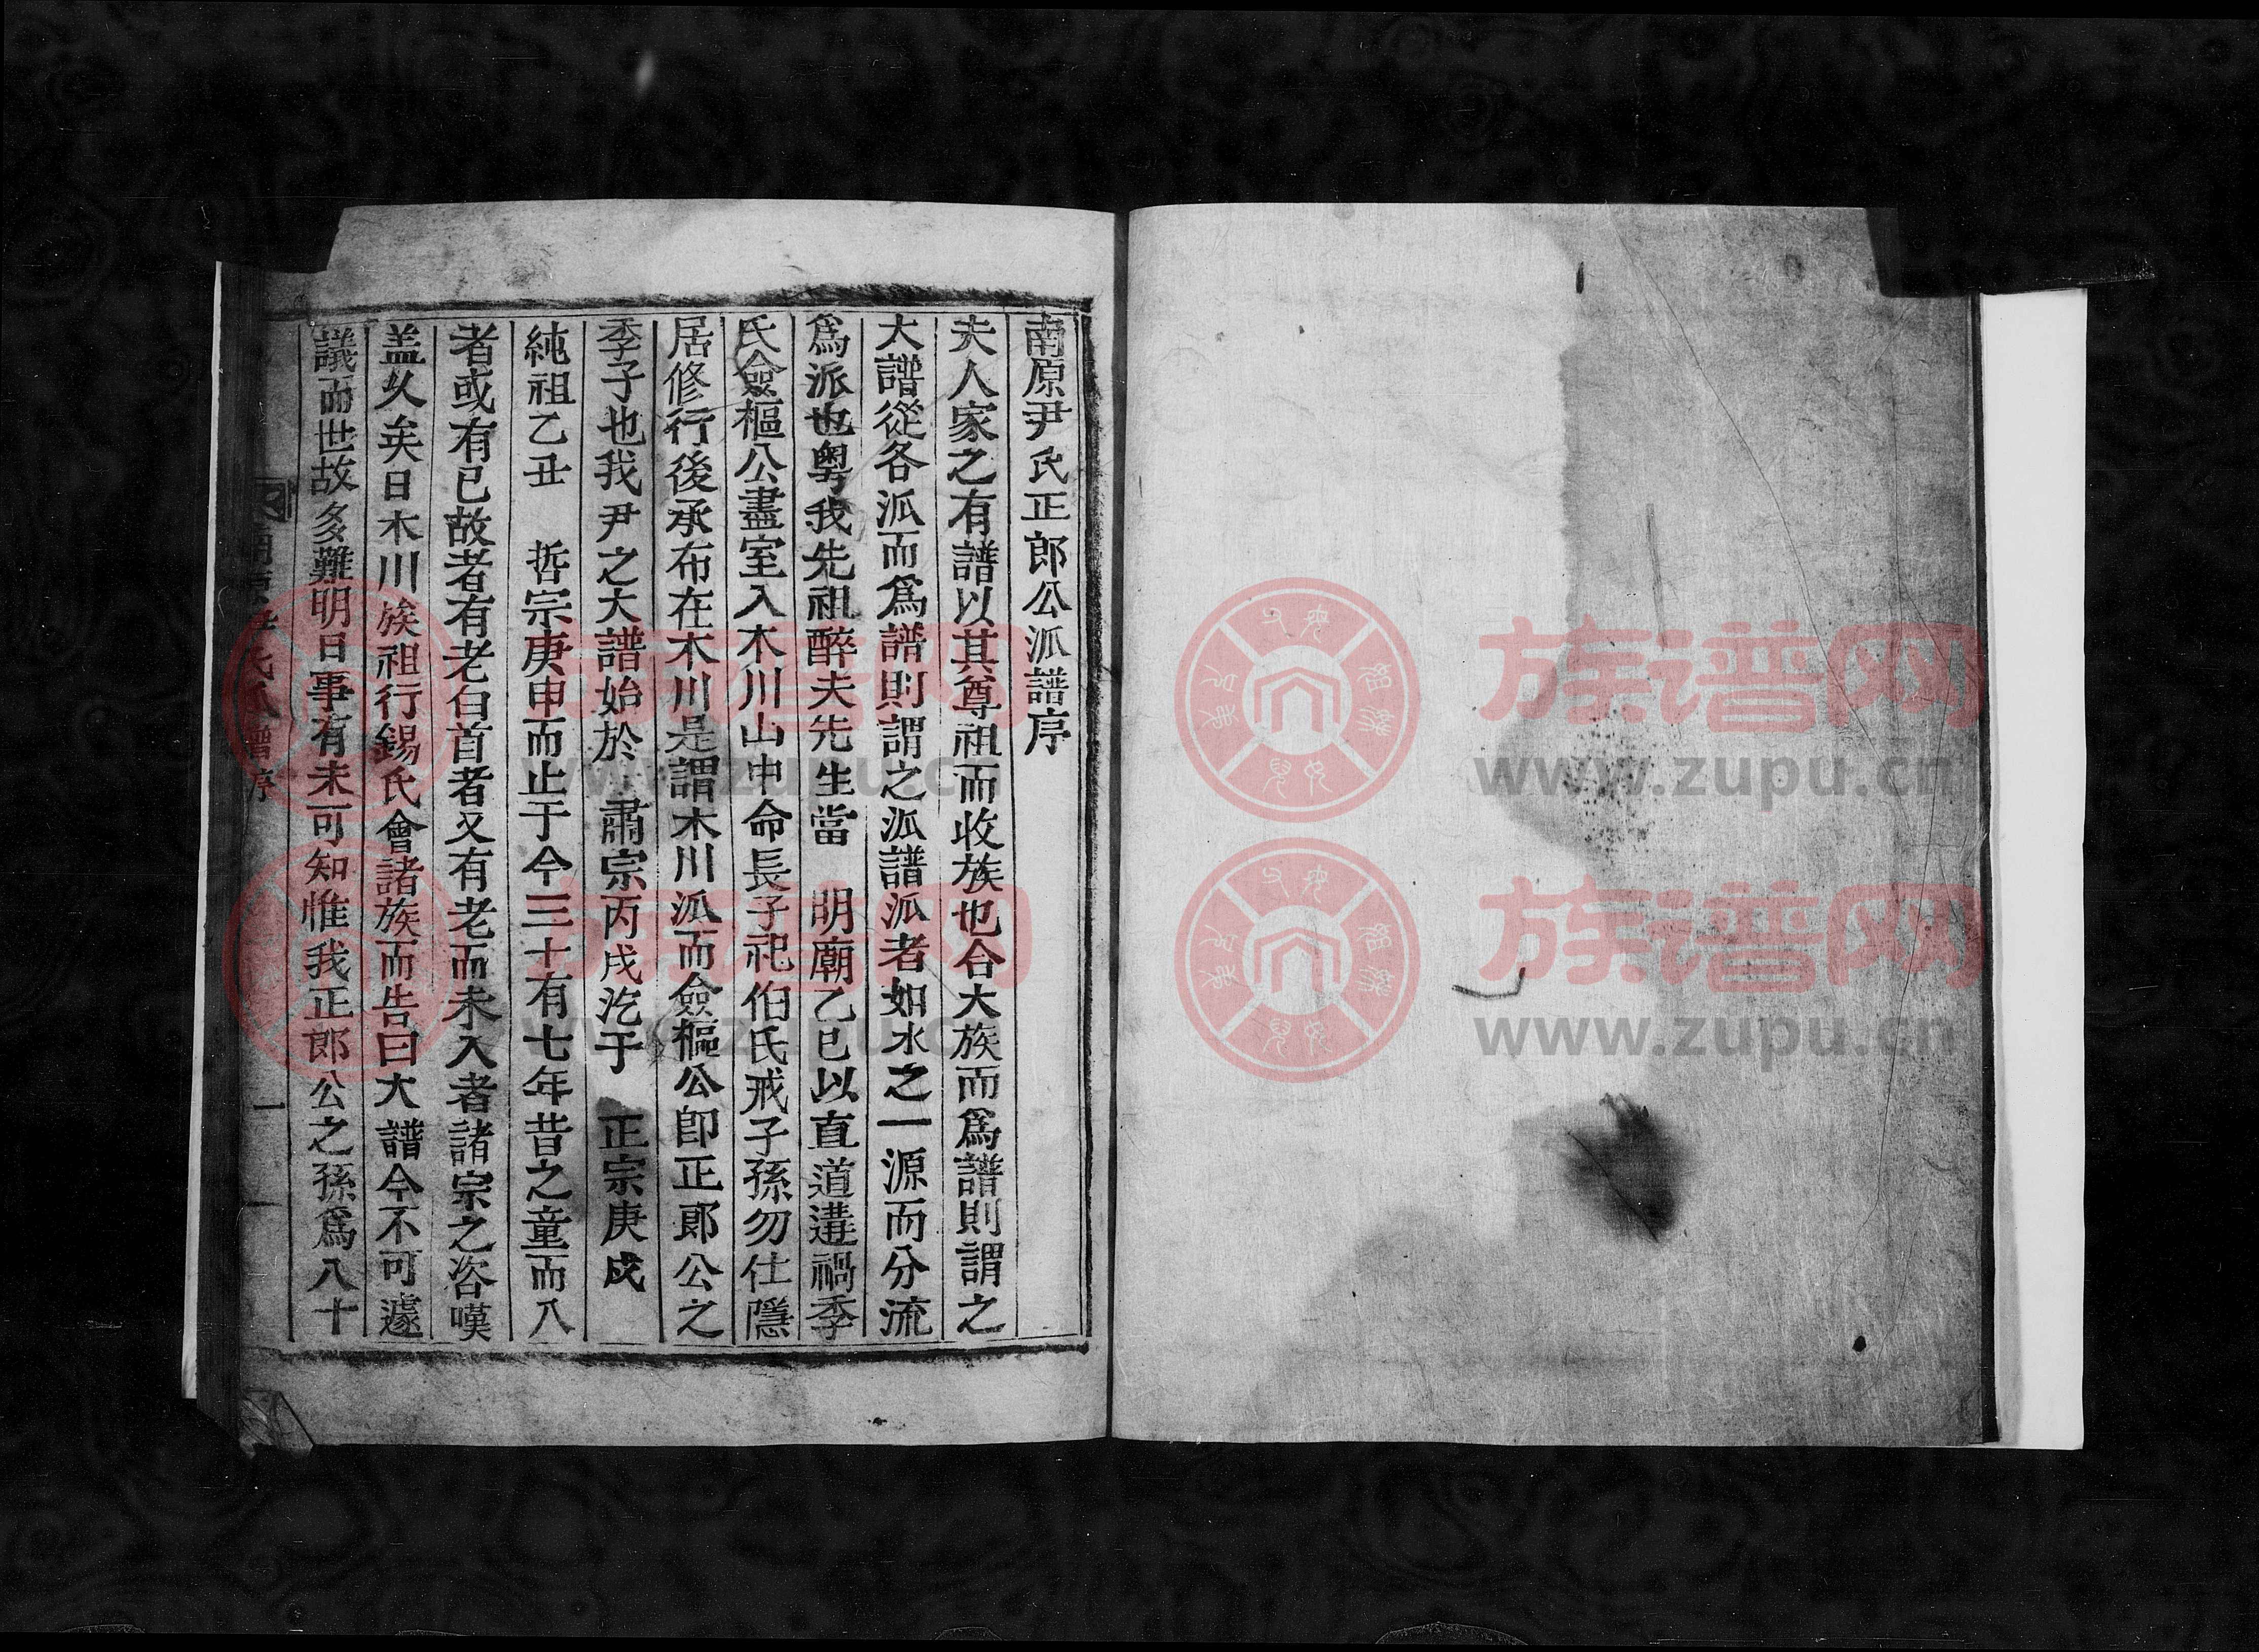 南原尹氏正郎公派譜序
夫人家之有譜以其尊祖而收族也合大族而爲譜則謂之
大譜從各派而爲譜則謂之派譜派者如水之一源而分流
爲派也粤我先祖醉夫先生當 明廟乙巳以直道遘禍季
氏僉樞公盡室入木川山中命長子祀伯氏戒子孫勿仕隱
居修行後承布在木川是謂木川派而僉樞公卽正郎公之
季子也我尹之大譜始於 肅宗丙戌汔于 正宗庚戌
純祖乙丑 哲宗庚申而止于今三十有七年昔之童而八
者或有已故者有老白首者又有老而未入者諸宗之咨嘆
盖久矣日木川族祖行錫氏會諸族而告曰大譜今不可遽
議而世故多難明日事有未可知惟我正郎公之孫爲八十
氏派譜序
一
族谱网
www.zupu.cn
族谱网
www.zupu.cn
族谱网
www.zupu.cn
族谱网
www.zupu.cn